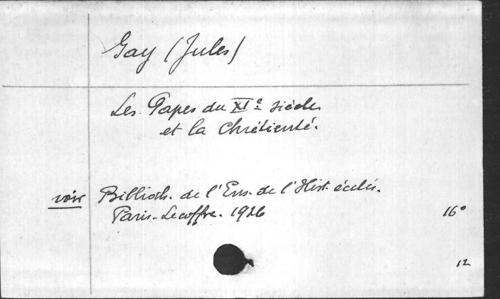 Gay (Jules)
Les Papes du XIe siècle
et la Chrétienté.
voir Biblioth. de l'Ens. de l'Hist. ecclés.
Paris - Lecoffre - 1926
16°
12